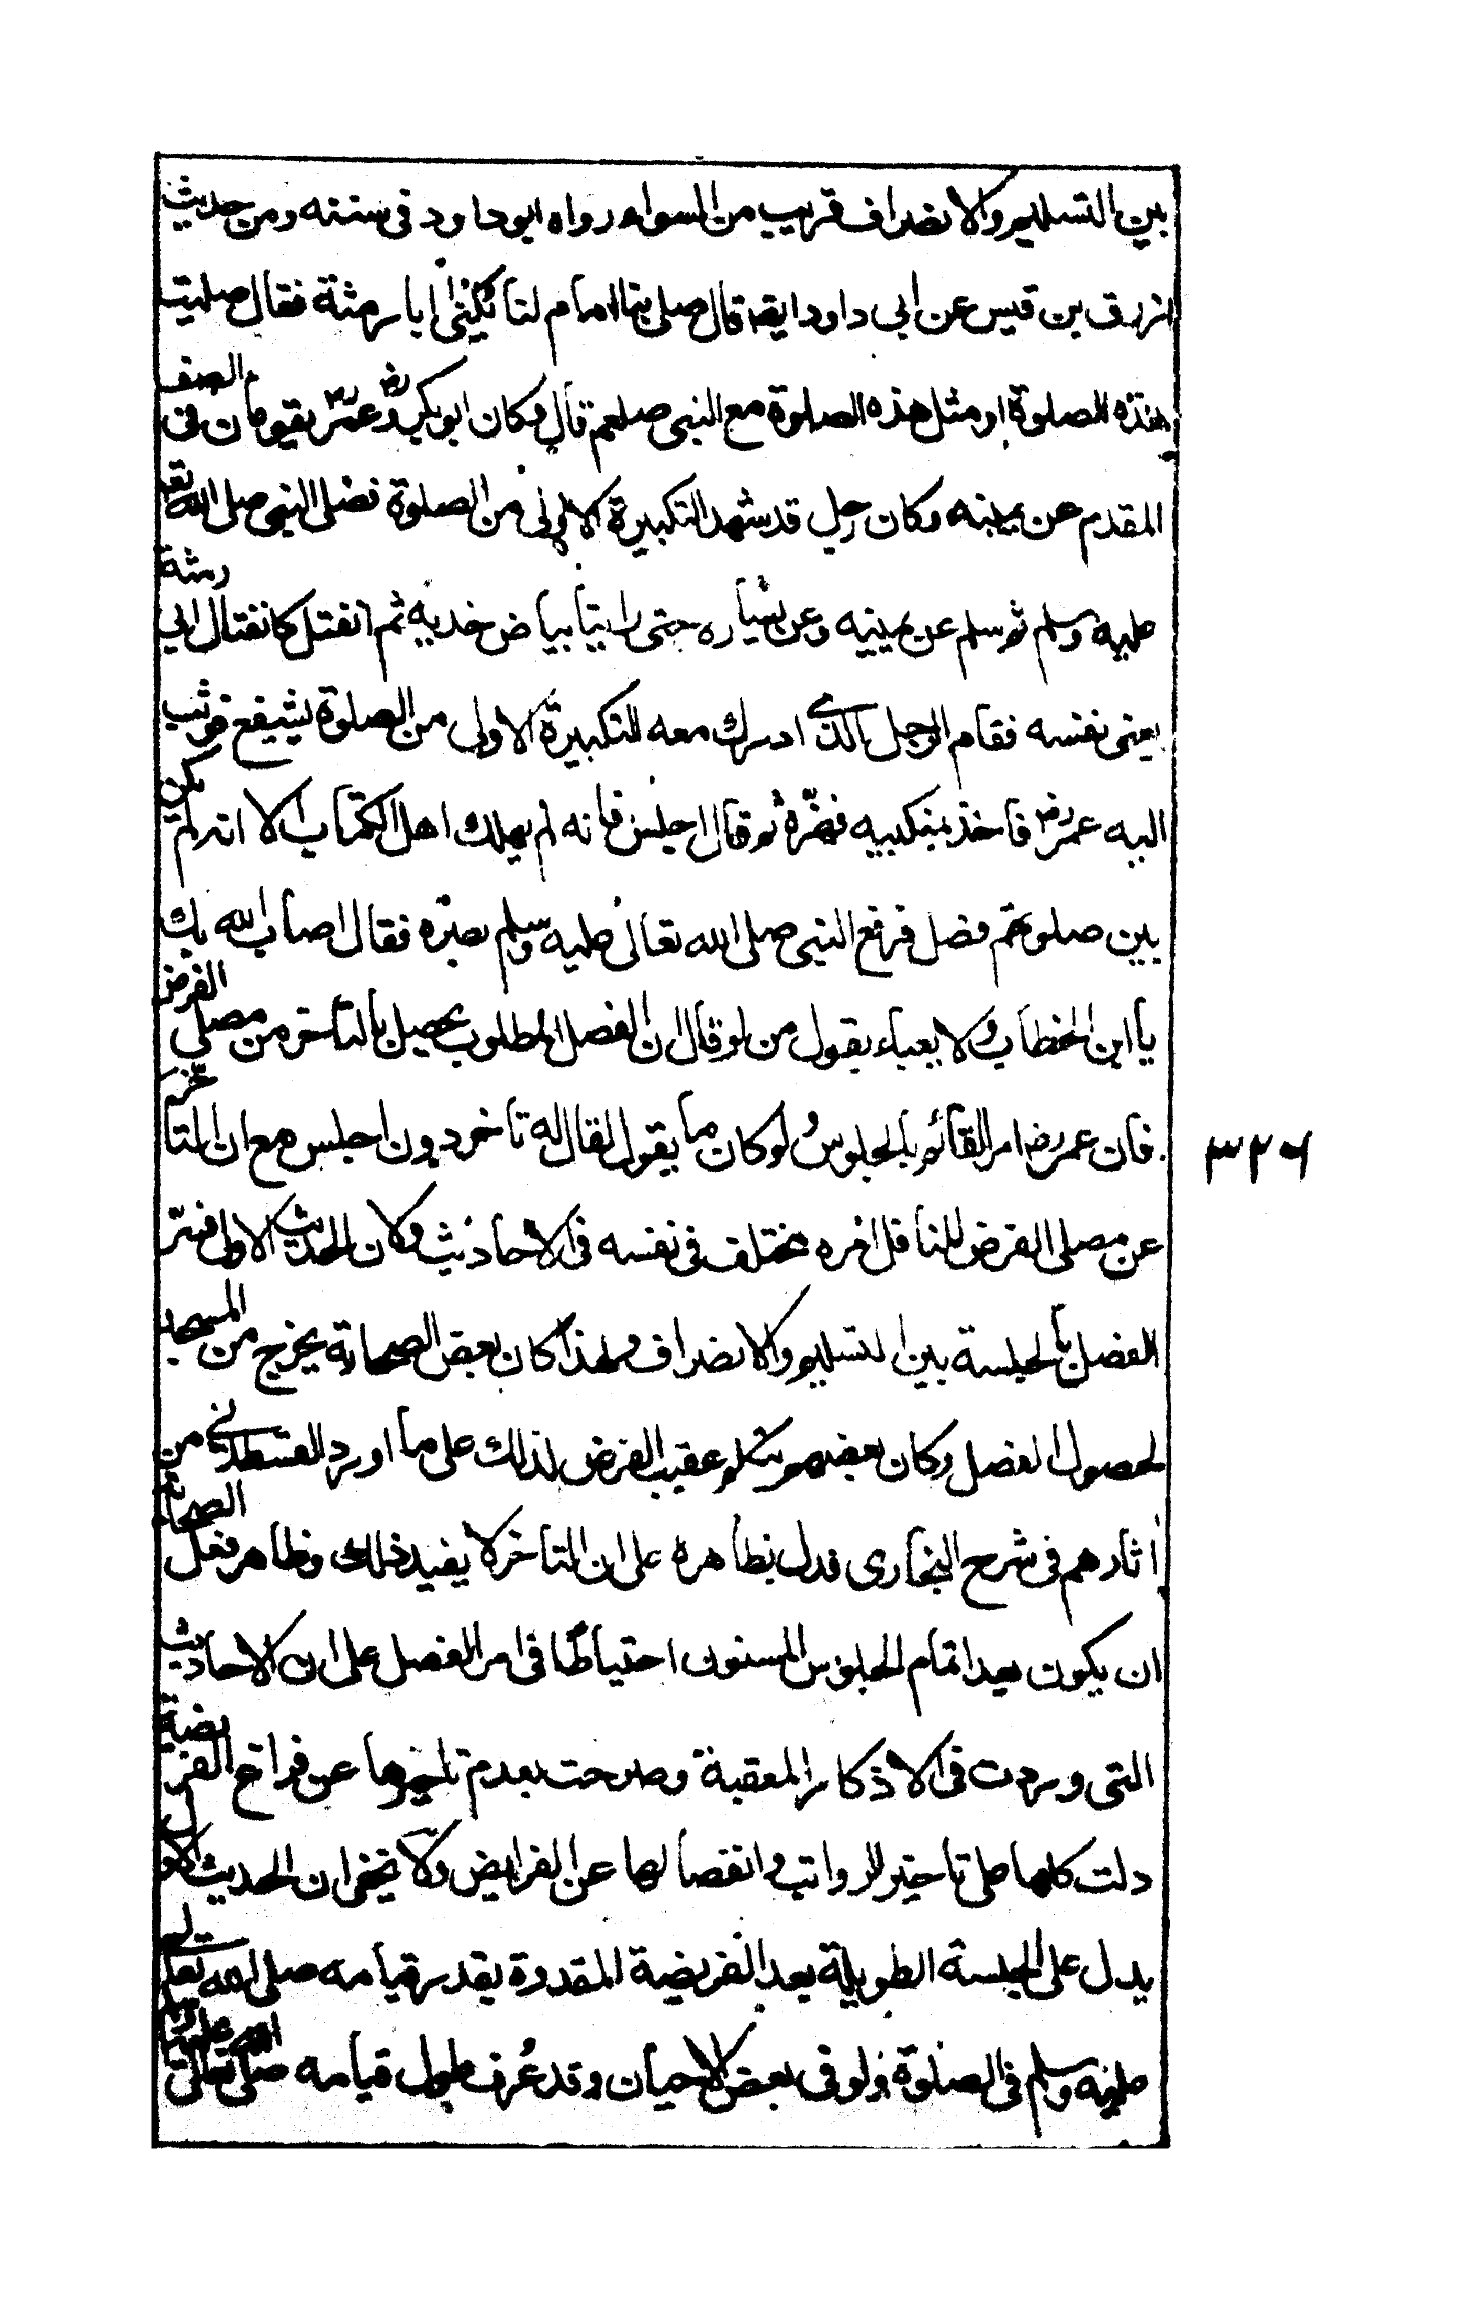 بين التسليم والانصراف قريب من السواء رواه ابو داود فى سننه ومن حديث
ازرق بن قيس عن ابى داود ايضا قال صلى بنا امام لنا يكنى ابا رمثة فقال صليت
هذه الصلوة او مثل هذه الصلوة مع النبى صلعم قال وكان ابو بكر رض وعمر رض يقومان فى الصف
المقدم عن يمينه وكان رجل قد شهد التكبيرة الاولى من الصلوة فصلى النبى صلى الله تعالى
عليه وسلم ثم سلم عن يمينه وعن يساره حتى راينا بياض خديه ثم انفتل كانفتال ابى رمثة
يعنى نفسه فقام الرجل الذى ادرك معه التكبيرة الاولى من الصلوة يشفع فوثب
اليه عمر رض فاخذ بمنكبيه فهزه ثم قال اجلس فانه لم يهلك اهل الكتاب الا انه لم يكن
بين صلوتهم فصل فرفع النبى صلى الله تعالى عليه وسلم بصره فقال اصاب الله بك
يا ابن الخطاب ولا يعباء بقول من لو قال ان الفصل المطلوب يحصل بالتاخر من مصلى الفرض
فان عمر رض امر القائم بالجلوس ولو كان ما يقول لقال له تاخر دون اجلس مع ان التاخر
عن مصلى الفرض للنافل امره مختلف فى نفسه فى الاحاديث ولان الحديث الاول فسر
الفصل بالجلسة بين التسليم والانصراف ولهذا كان بعض الصحابة يخرج من المسجد
لحصول الفصل وكان بعضهم يتكلم عقيب الفرض لذلك على ما اورد القسطلانى من
اثارهم فى شرح البخارى فدل بظاهره على ان التاخر لا يفيد ذلك وظاهر فعل الصحابة
ان يكون بعد اتمام الجلوس المسنون احتياطا فى امر الفصل على ان الاحاديث
التى وردت فى الاذكار المعقبة وصرحت بعدم تاخيرها عن فراغ الفريضة
دلت كلها على تاخير الرواتب وانفصالها عن الفرايض ولا يخفى ان الحديث الاول
يدل على الجلسة الطويلة بعد الفريضة المقدرة بقدر قيامه صلى الله تعالى
عليه وسلم فى الصلوة ولو فى بعض الاحيان وقد عرف طول قيامه صلى الله تعالى عليه وسلم
٣٢٦